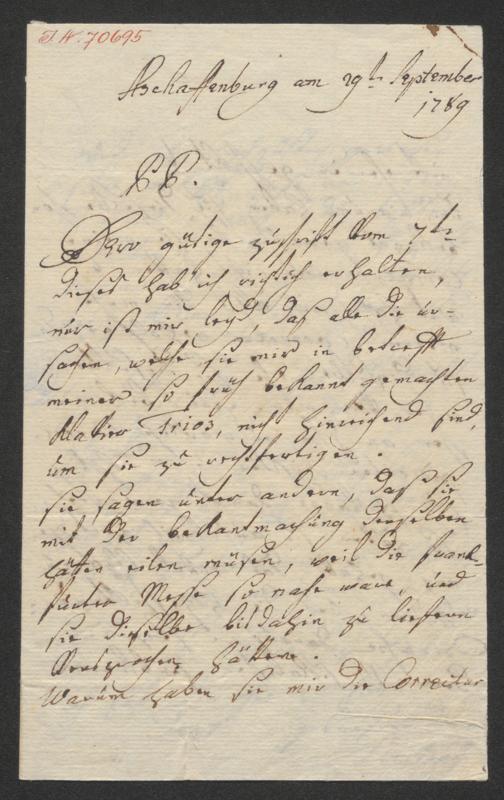 I.N. 70695
Aschaffenburg am 29ten September
1789
P P.
Dero gütige zuschrift vom 7ten
dieses hab ich richtich erhalten,
nur ist mir leyd, daß alle die ur-
sachen, welche sie mir in betreff
meiner so früh bekannt gemachten
Klavier Trios, nicht hinreichend sind,
um sie zu rechtfertigen.
sie sagen unter andern, daß sie
mit der bekantmachung derselben
hätten eilen müsen, weil die frank-
furter Messe so nahe ware, und
sie dieselbe bis dahin zu liefern
versprochen hätten.
Warum haben sie mir die Correctur